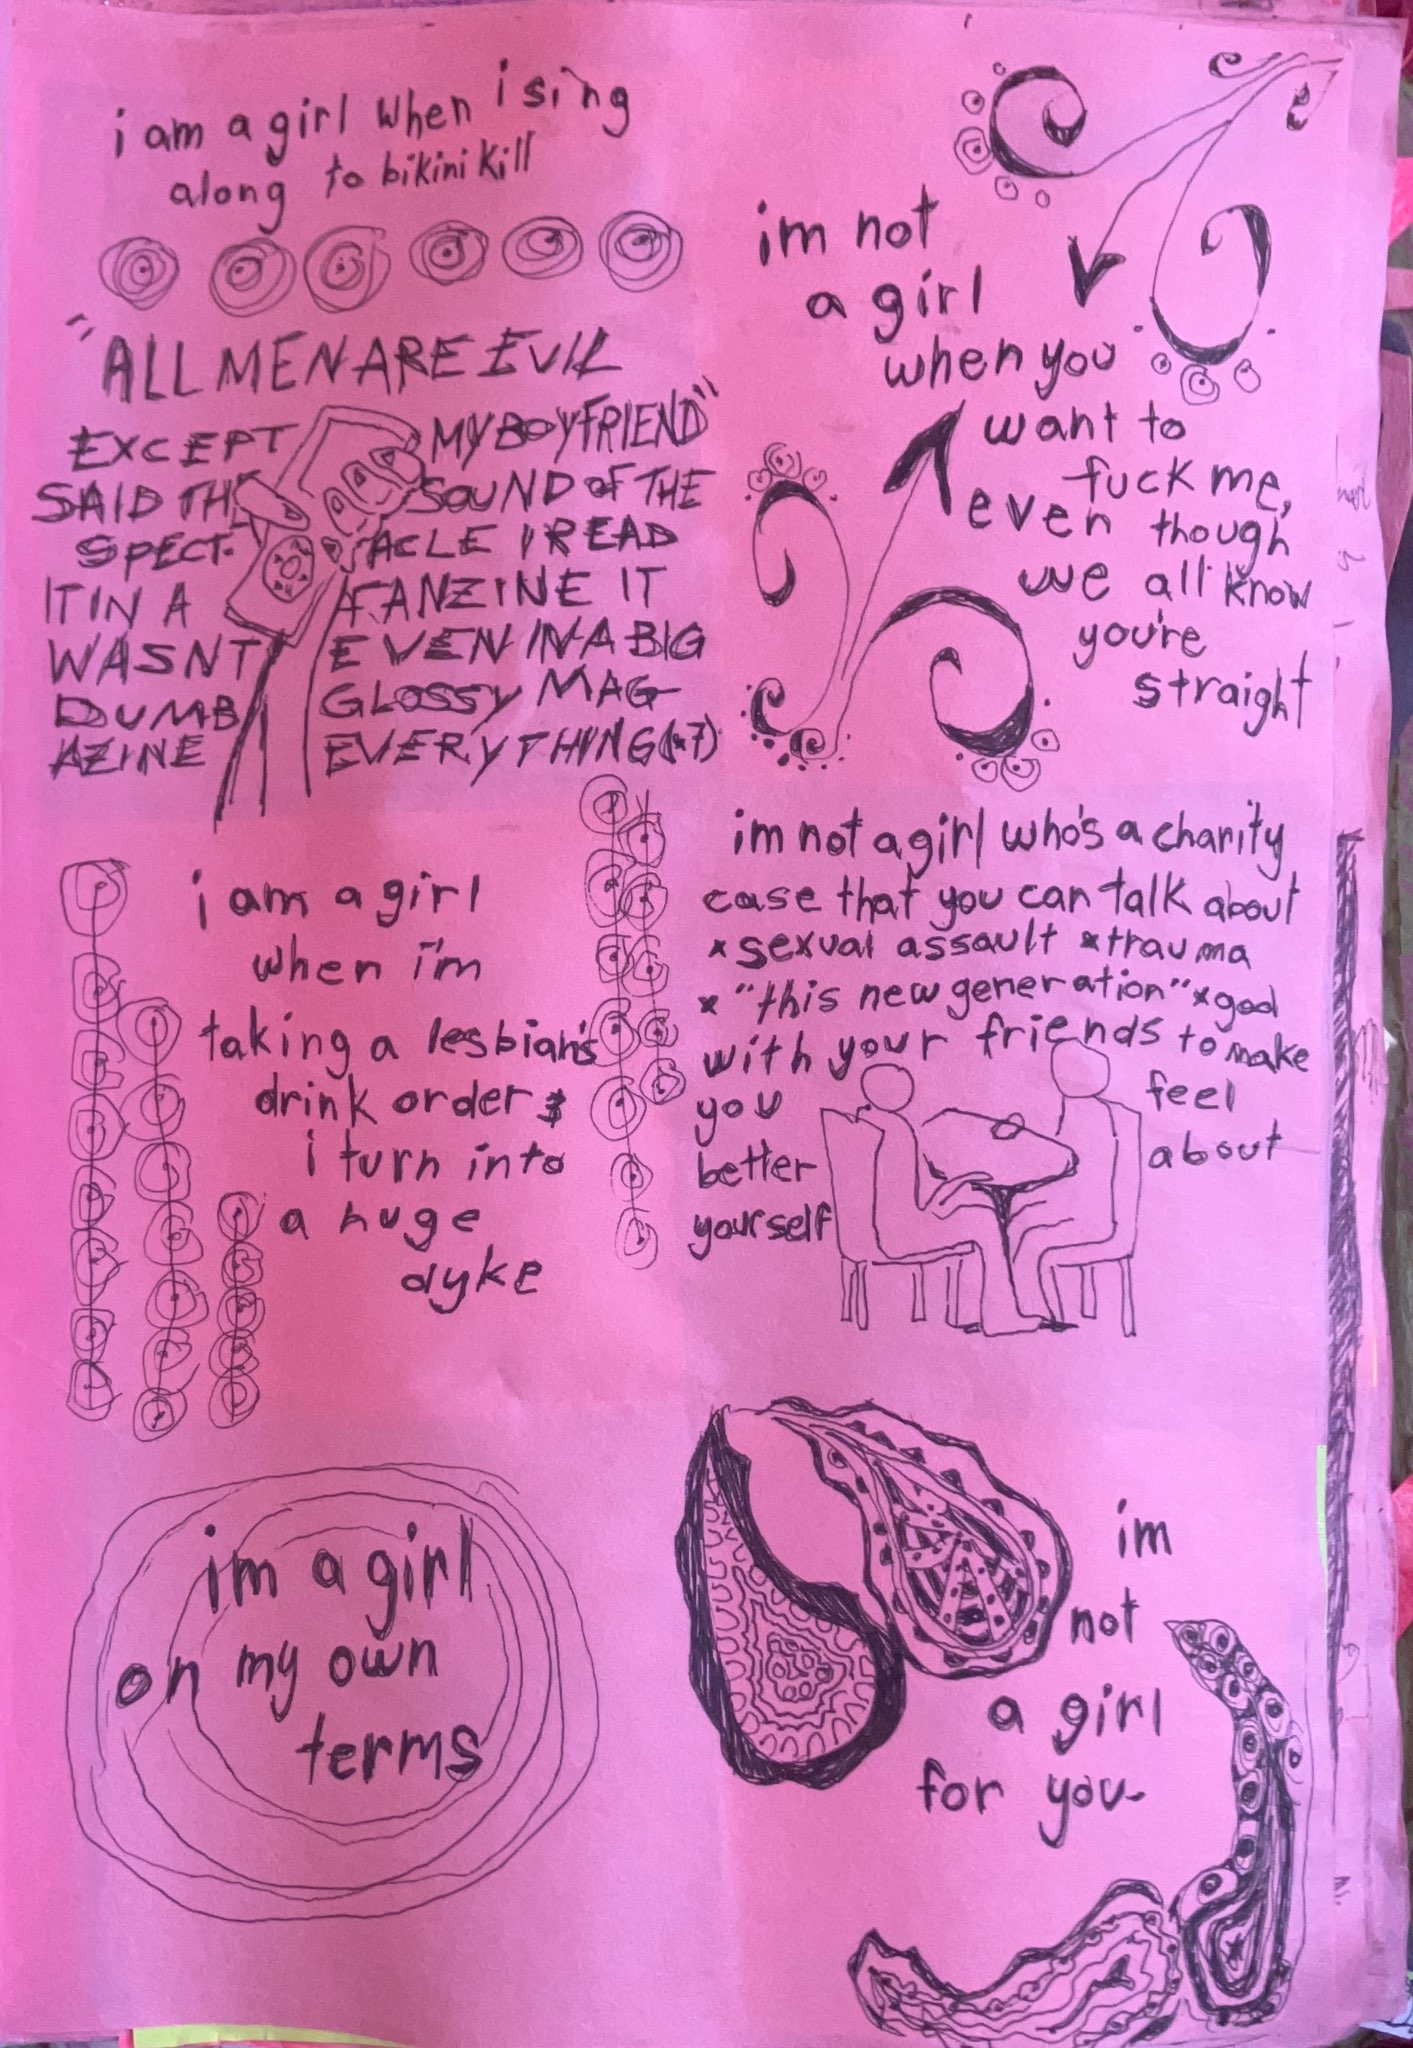 i am a girl when i sing
along to bikini kill
"ALL MEN ARE EVIL
EXCEPT MY BOYFRIEND"
SAID THE SOUND OF THE
SPECT- ACLE I READ
IT IN A FANZINE IT
WASNT EVEN IN A BIG
DUMB GLOSSY MAG-
AZINE EVERYTHING (x7)
im not
a girl
when you
want to
fuck me,
even though
we all know
you're
straight
i am a girl
when i'm
taking a lesbian's
drink order &
i turn into
a huge
dyke
im not a girl who's a charity
case that you can talk about
x sexual assault x trauma
x "this new generation" x god
with your friends to make
you feel
better about
yourself
im a girl
on my own
terms
im
not
a girl
for you-